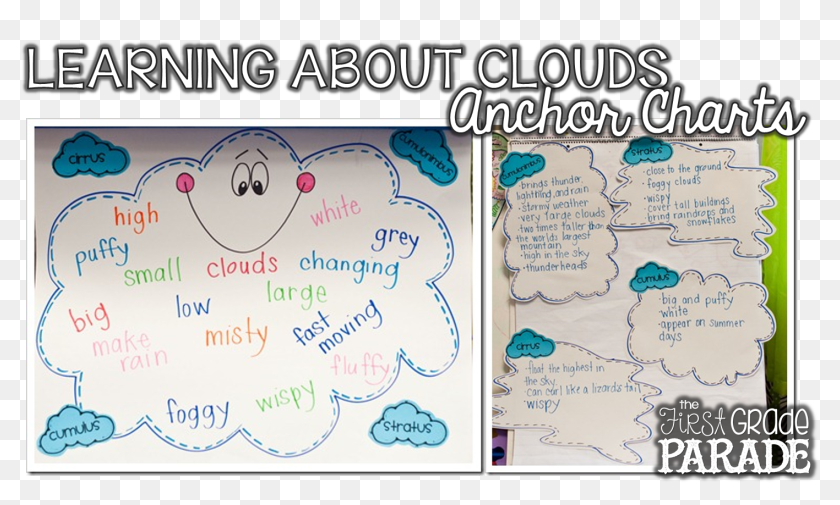 LEARNING ABOUT CLOUDS
Anchor Charts
cirrus
cumulonimbus
high
white
puffy
grey
small
clouds
changing
big
low
large
make
rain
misty
fast
moving
fluffy
foggy
wispy
cumulus
stratus
cumulonimbus
·brings thunder,
lightning, and rain
·stormy weather
·very large clouds
·two times taller than
the world's largest
mountain
·high in the sky
·thunderheads
stratus
·close to the ground
·foggy clouds
·wispy
·cover tall buildings
·bring raindrops and
snowflakes
cumulus
·big and puffy
·white
·appear on summer
days
cirrus
·float the highest in
the sky
·can curl like a lizard's tail
·wispy
the
First Grade
PARADE